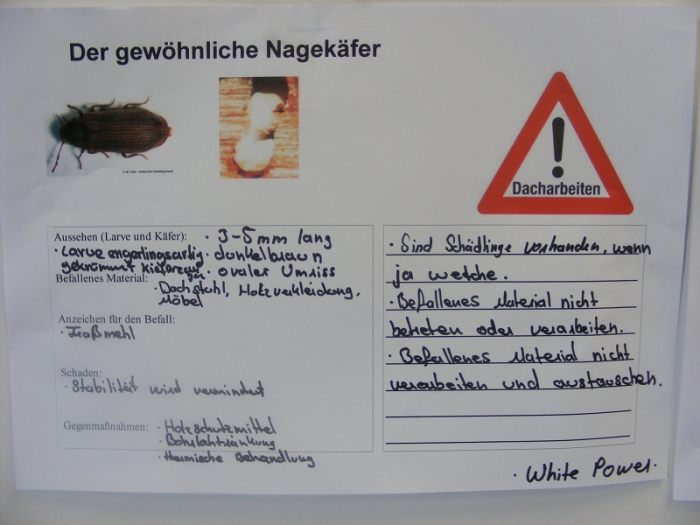 Der gewöhnliche Nagekäfer
Dacharbeiten
Aussehen (Larve und Käfer): · 3-5mm lang
· Larve engerlingsartig · dunkelbraun
gekrümmt · ovaler Umriss
Befallenes Material:
· Dachstuhl, Holzverkleidung,
Möbel
Anzeichen für den Befall:
· Fraßmehl
Schaden:
· Stabilität wird vermindert
Gegenmaßnahmen: · Holzschutzmittel
· thermische Behandlung
· Sind Schädlinge vorhanden, wenn
ja welche.
· Befallenes Material nicht
betreten oder verarbeiten.
· Befallenes Material nicht
verarbeiten und austauschen.
· White Power·